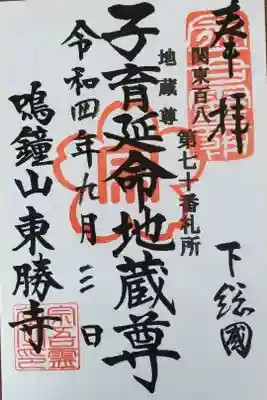 奉拝
関東百八
地蔵尊
第七十番札所
下総國
子育延命地蔵尊
令和四年九月三日
鳴鐘山東勝寺
宗吾霊